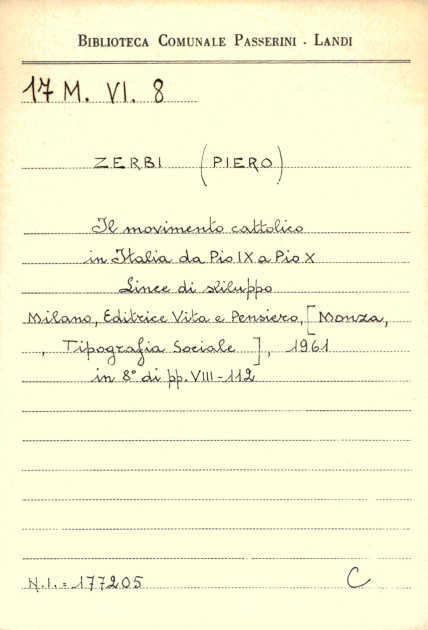 BIBLIOTECA COMUNALE PASSERINI - LANDI
17 M. VI. 8
ZERBI (PIERO)
Il movimento cattolico
in Italia da Pio IX a Pio X
Linee di sviluppo
Milano, Editrice Vita e Pensiero, [Monza,
, Tipografia Sociale], 1961
in 8° di pp. VIII-112
N.I. = 177205
C